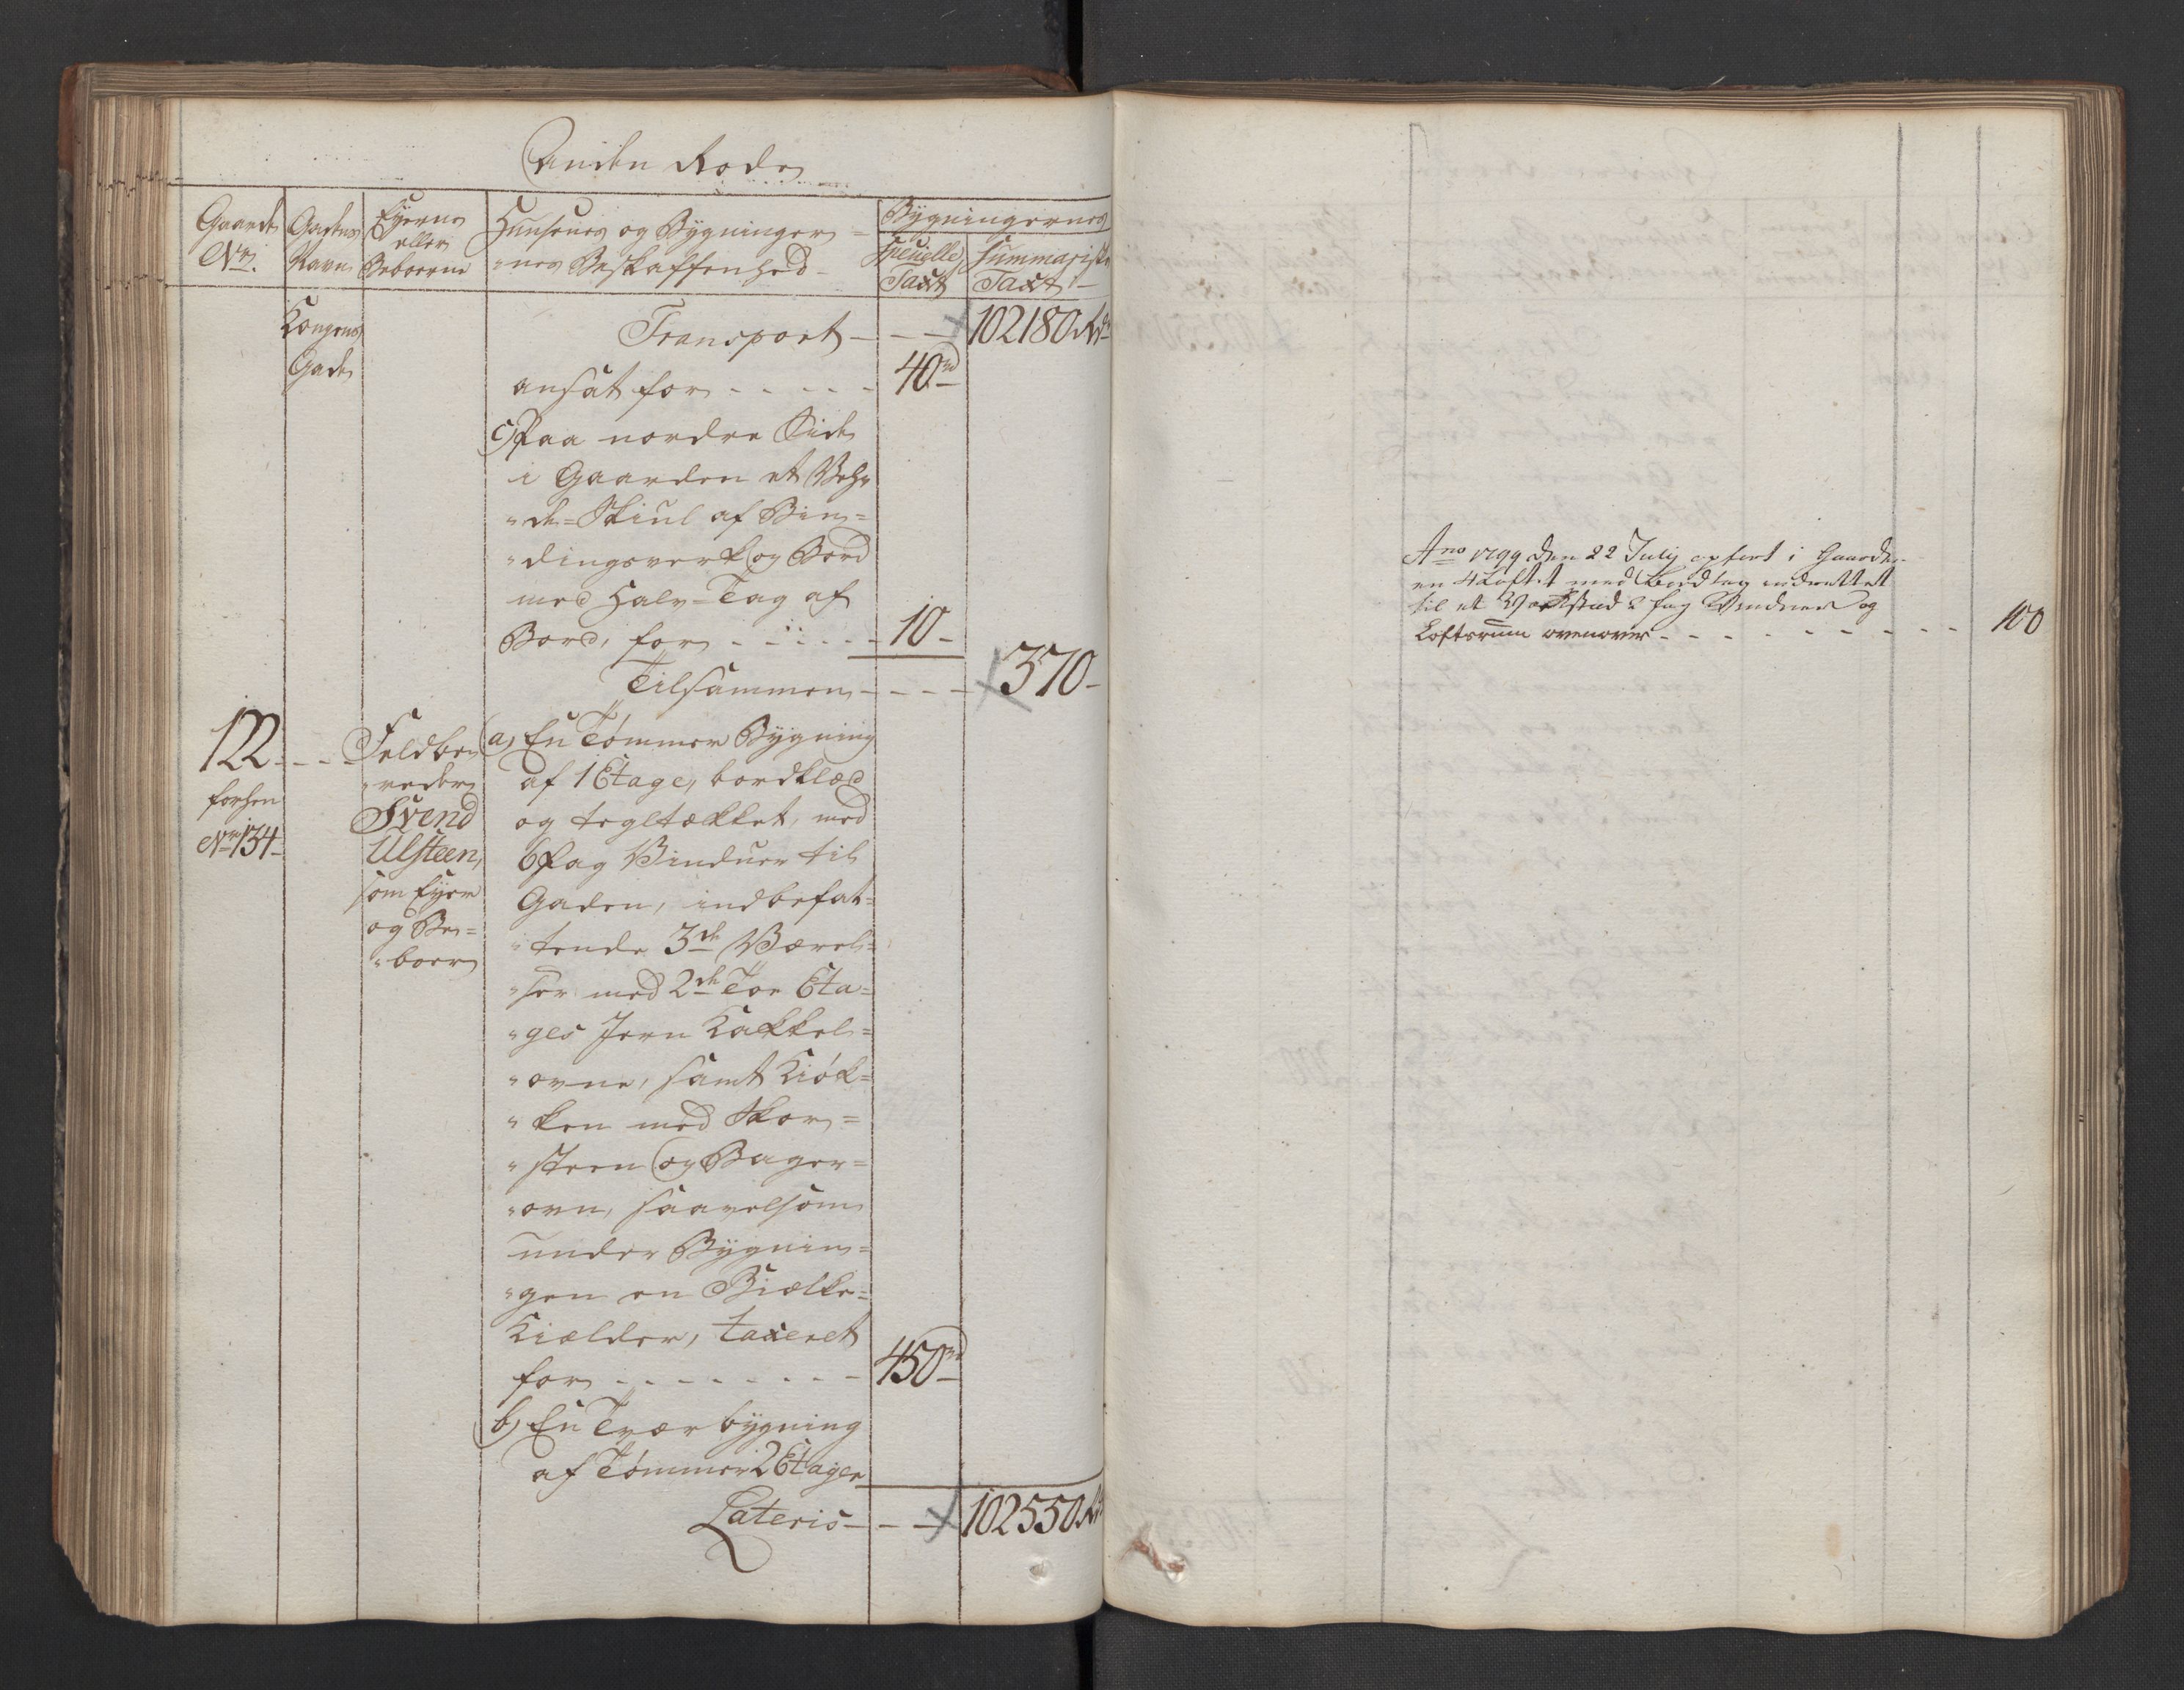 Anden Rode
Gaarde
No.
Gadens
Navn
Eyerne
eller
Beboerne
Huusenes og Bygninger=
"nes Beskaffenhed
Bygningernes
Specielle
Taxt
Summariske
Taxt
Kongens
Gade
Transport - - - 102180 Rdr
ansat for - - - - - 40 rd
c) Paa nordre Side
i Gaarden et Vehe
"de=Skiul af Bin=
"dingsverk og Bord
med Halv=Tag af
Bord, for - - - - - 10 -
Tilsammen - - - - 370 -
122 - - -
forhen
No 134
Feldbe
"reder
Svend
Ulsteen,
som Eyer
og Be=
"boer
a) En Tømmer Bygning
af 1 Etage, bordklæd
og tegltækket, med
6 Fag Vinduer til
Gaden, indbefat=
"tende 3de Værel=
"ser med 2de Toe Eta=
"ges Jern Kakkel=
"ovne, samt Kiøk=
"ken med Skor=
"steen og Bager=
"ovn, saavelsom
under Bygnin=
"gen en Bielke=
Kielder, taxeret
for - - - - - - - - 450 rd
b) En Tvær bygning
af Tømmer 2 Etager
Lateris - - - 102550 Rd
Ano 1799 den 22 July opført i Gaarden
en 4 Loftet med Bordtag indrettet
til et Værksted 2 fag Vinduer og
Loftsrum ovenover - - - - - - - - - 100